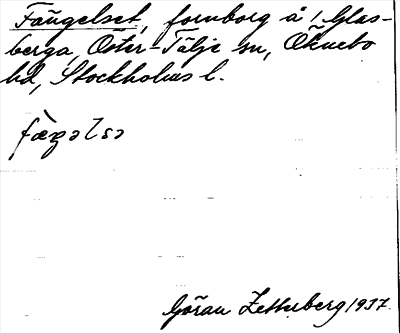 Fängelset, fornborg å / Glas-
berga, Öster-Tälje sn, Öknebo
hd, Stockholms l.
fæ̀ŋəlsə
Göran Zetterberg 1937.